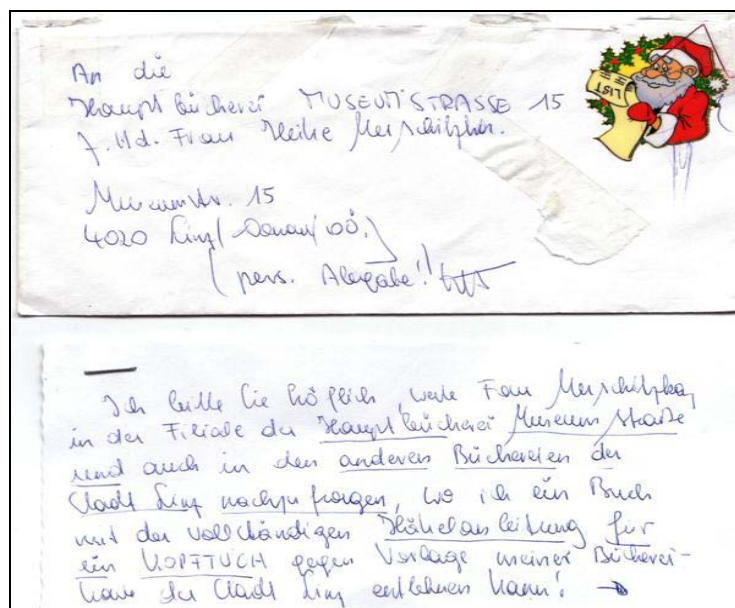 An die
Hauptbücherei MUSEUMSTRASSE 15
z. Hd. Frau Heike Merschitzka.
LIST
Museumstr. 15
4020 Linz/Donau/OÖ.
(pers. Abgabe!)
Ich bitte Sie höflich, werte Frau Merschitzka,
in der Filiale der Hauptbücherei Museumstraße
und auch in den anderen Büchereien der
Stadt Linz nachzufragen, wo ich ein Buch
mit der vollständigen Häkelanleitung für
ein KOPFTUCH gegen Vorlage meiner Bücherei-
karte der Stadt Linz entlehnen kann! →